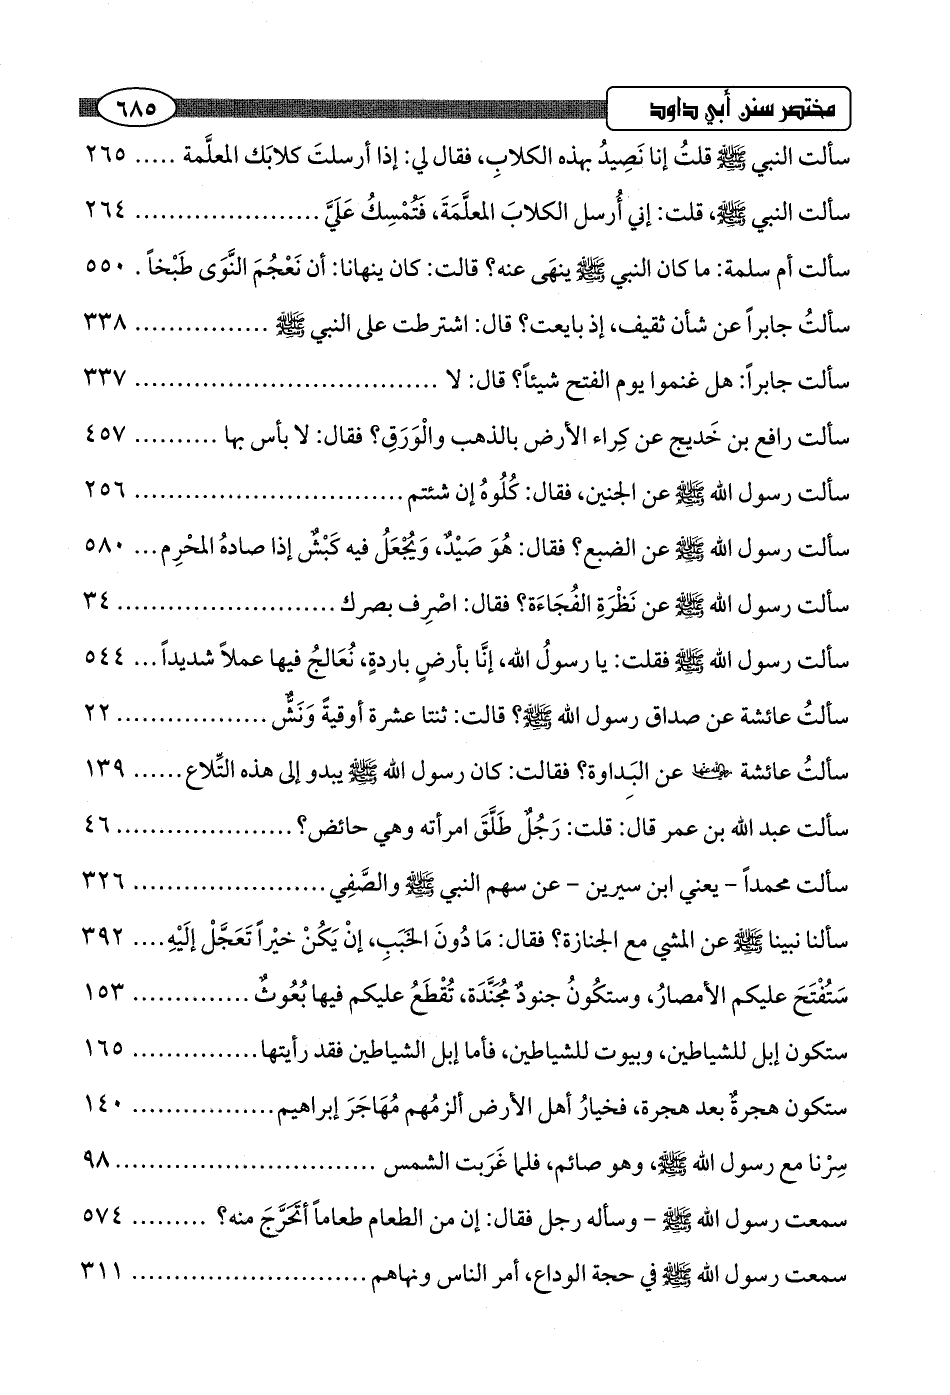 مختصر سنن أبي داود ٦٨٥
سألت النبي ﷺ قلتُ إنا نَصِيدُ بهذه الكلابِ، فقال لي: إذا أرسلتَ كلابَك المعلَّمة ..... ٢٦٥
سألت النبي ﷺ، قلت: إني أُرسل الكلابَ المعلَّمَةَ، فَتُمْسِكُ عَلَيَّ ...................... ٢٦٤
سألت أم سلمة: ما كان النبي ﷺ ينهَى عنه؟ قالت: كان ينهانا: أن نَعْجُمَ النَّوَى طَبْخاً . ٥٥٠
سألتُ جابراً عن شأن ثقيف، إذ بايعت؟ قال: اشترطت على النبي ﷺ ................ ٣٣٨
سألت جابراً: هل غنموا يوم الفتح شيئاً؟ قال: لا .................................... ٣٣٧
سألت رافع بن خَديج عن كِراء الأرض بالذهب والْوَرَقِ؟ فقال: لا بأس بها .......... ٤٥٧
سألت رسول الله ﷺ عن الجنين، فقال: كُلُوهُ إن شئتم ................................ ٢٥٦
سألت رسول الله ﷺ عن الضبع؟ فقال: هُوَ صَيْدٌ، وَيُجْعَلُ فيه كَبْشٌ إذا صادهُ المحْرِم ... ٥٨٠
سألت رسول الله ﷺ عن نَظْرَةِ الفُجَاءَة؟ فقال: اصْرِف بصرك .......................... ٣٤
سألت رسول الله ﷺ فقلت: يا رسولُ الله، إنَّا بأرضٍ باردةٍ، نُعَالجُ فيها عملاً شديداً ... ٥٤٤
سألتُ عائشة عن صداق رسول الله ﷺ؟ قالت: ثنتا عشرة أوقيةً وَنَشٌّ .................. ٢٢
سألتُ عائشة رضي الله عنها عن البَداوة؟ فقالت: كان رسول الله ﷺ يبدو إلى هذه التِّلاع ...... ١٣٩
سألت عبد الله بن عمر قال: قلت: رَجُلٌ طَلَّقَ امرأته وهي حائض؟ ..................... ٤٦
سألت محمداً - يعني ابن سيرين - عن سهم النبي ﷺ والصَّفِي ....................... ٣٢٦
سألنا نبينا ﷺ عن المشي مع الجنازة؟ فقال: مَا دُونَ الخَبَبِ، إنْ يَكُنْ خيْراً تَعَجَّلْ إلَيْهِ .... ٣٩٢
سَتُفْتَحَ عليكم الأمصارُ، وستكُونُ جنودٌ مُجَنَّدَة، تُقْطَعُ عليكم فيها بُعُوثٌ .............. ١٥٣
ستكون إبل للشياطين، وبيوت للشياطين، فأما إبل الشياطين فقد رأيتها ............... ١٦٥
ستكون هجرةٌ بعد هجرة، فخيارُ أهل الأرض ألزمُهم مُهَاجَرَ إبراهيم .................. ١٤٠
سِرْنا مع رسول الله ﷺ، وهو صائم، فلما غَرَبت الشمس ............................... ٩٨
سمعت رسول الله ﷺ - وسأله رجل فقال: إن من الطعام طعاماً أتَحَرَّجَ منه؟ ......... ٥٧٤
سمعت رسول الله ﷺ في حجة الوداع، أمر الناس ونهاهم ............................ ٣١١